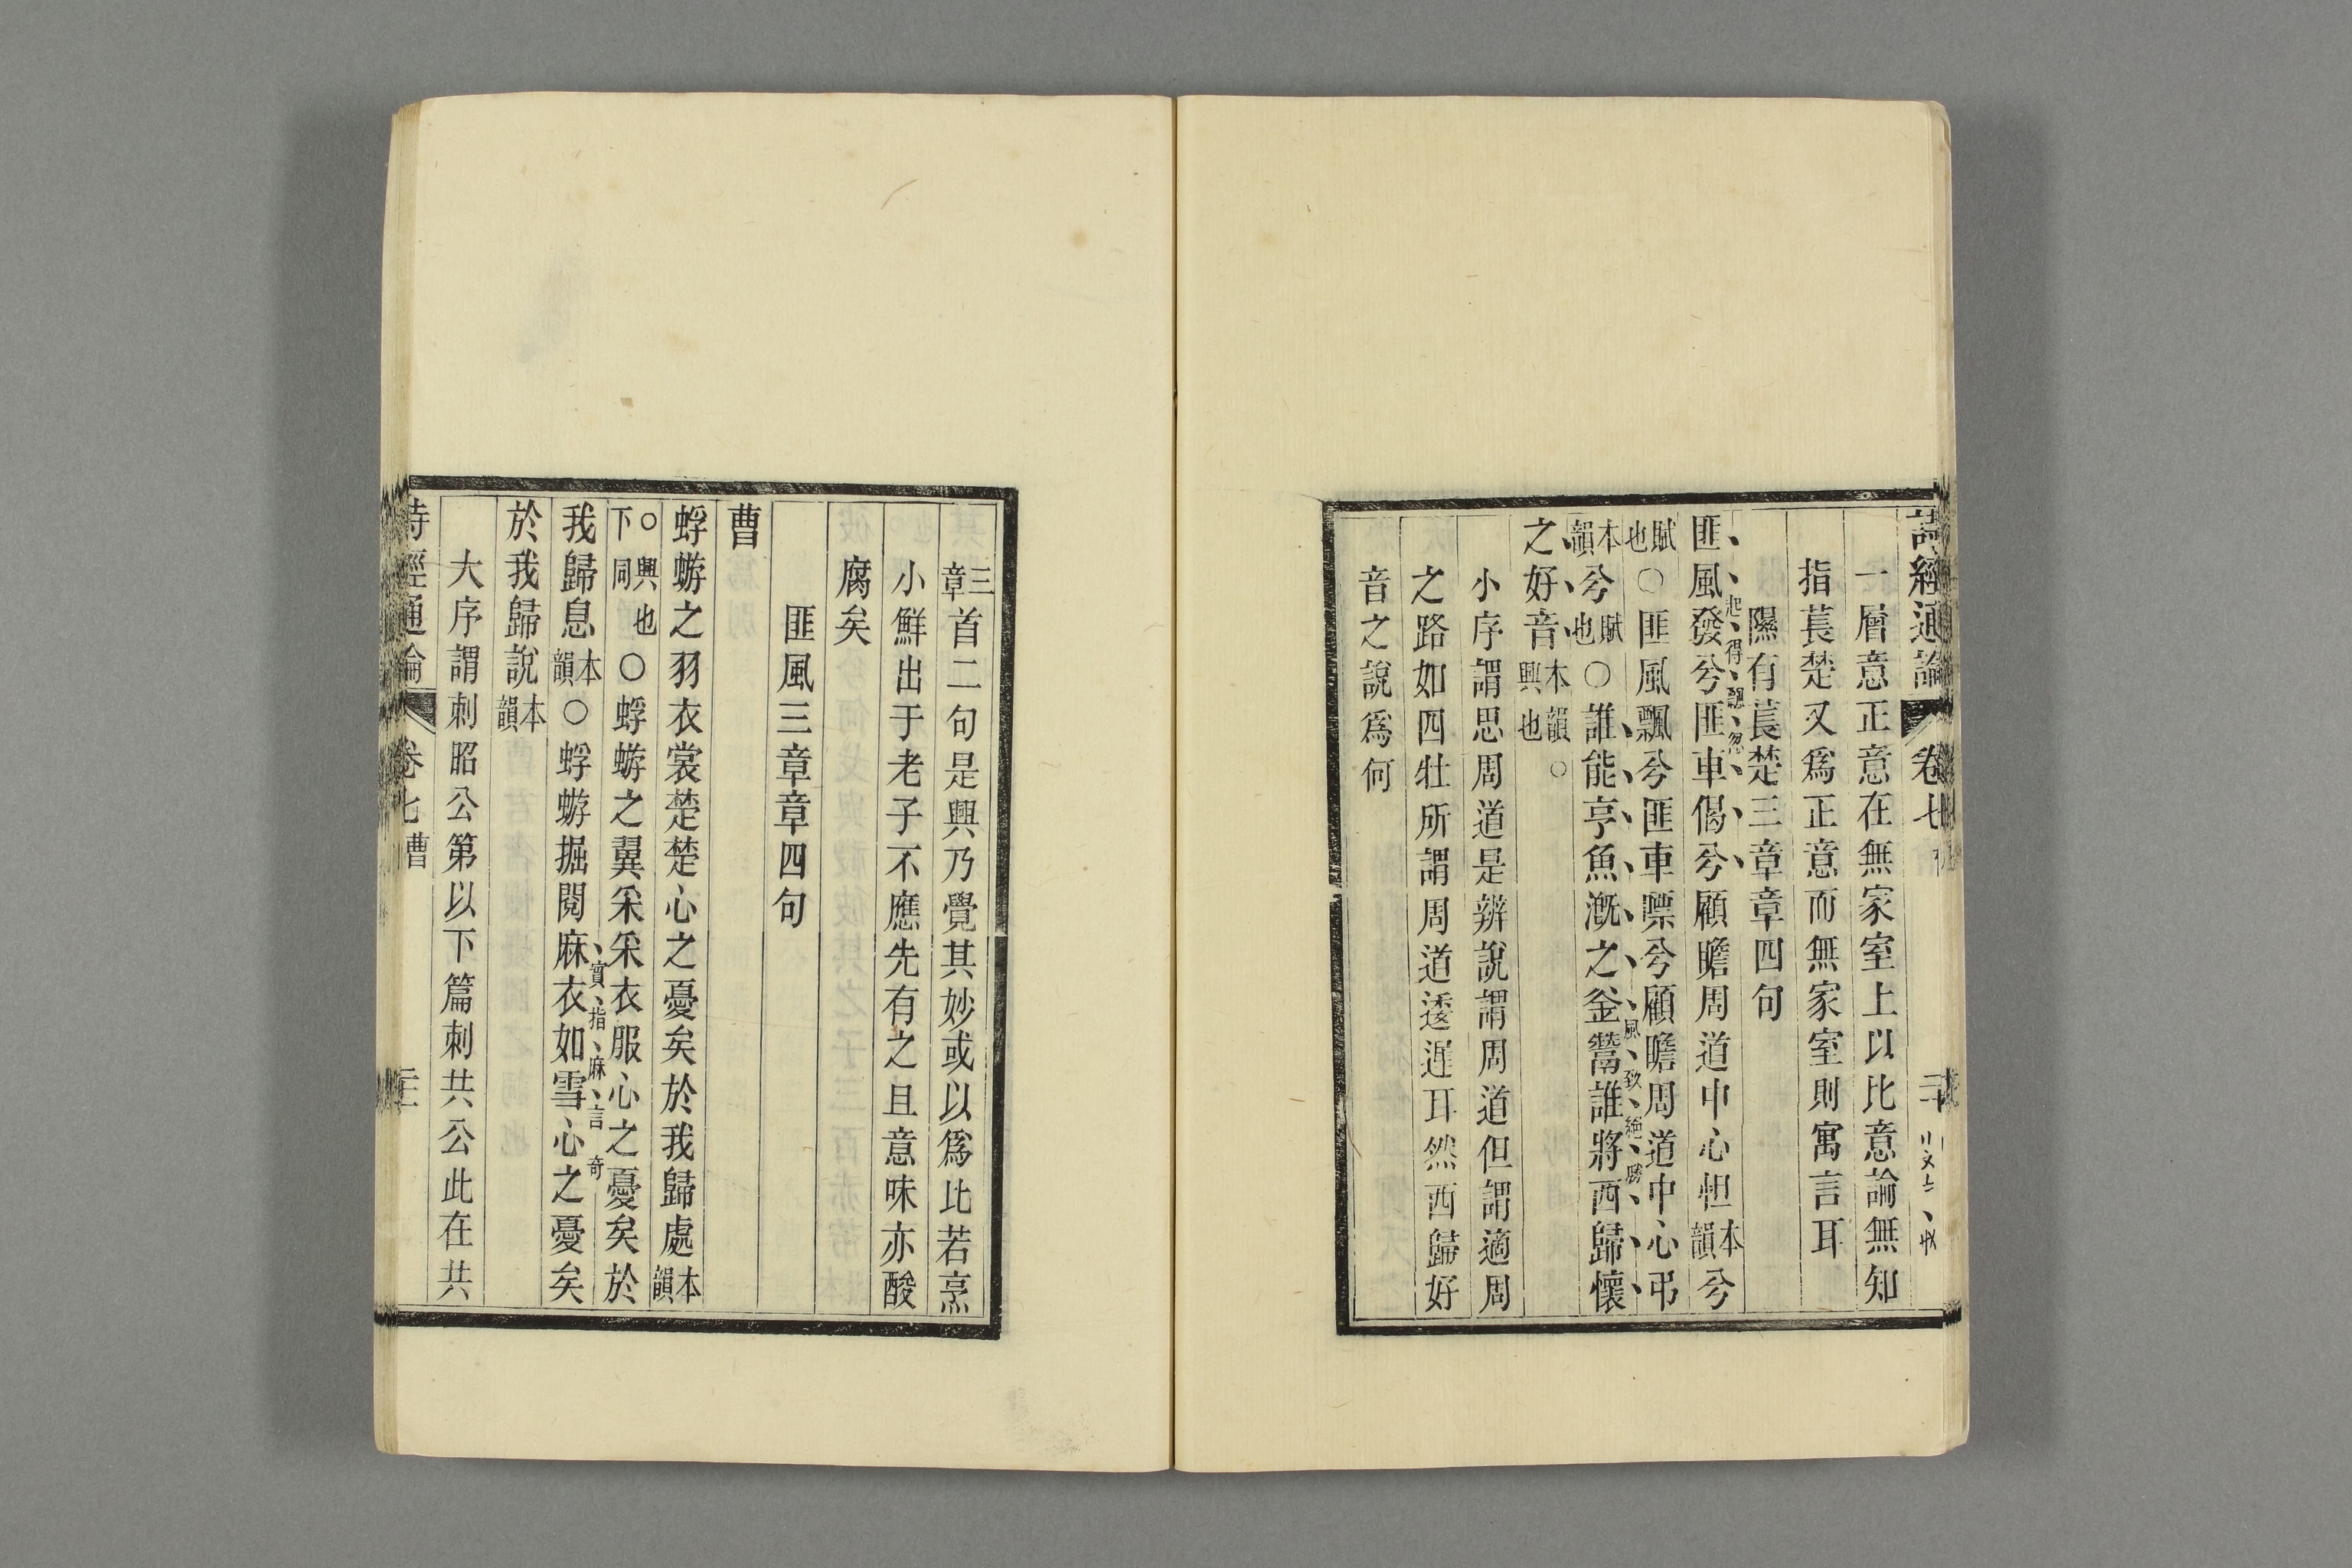 詩經通論 卷七
一層意正意在無家室上以比意論無知
指萇楚又爲正意而無家室則寓言耳
隰有萇楚三章章四句
匪風發兮匪車偈兮顧瞻周道中心怛本韻兮
起得飄忽
賦也○匪風飄兮匪車嘌兮顧瞻周道中心弔
本韻兮賦也○誰能亨魚溉之釜鬵誰將西歸懷
風致絕勝
之好音本韻興也○
小序謂思周道是辨說謂周道但謂適周
之路如四牡所謂周道逶遲耳然西歸好
音之說爲何
三章首二句是興乃覺其妙或以爲比若烹
小鮮出于老子不應先有之且意味亦酸
腐矣
匪風三章章四句
曹
蜉蝣之羽衣裳楚楚心之憂矣於我歸處本韻
○興也下同○蜉蝣之翼采采衣服心之憂矣於
我歸息本韻○蜉蝣掘閱麻衣如雪心之憂矣
實指麻言奇
於我歸說本韻
大序謂刺昭公第以下篇刺共公此在共
詩經通論 卷七 曹